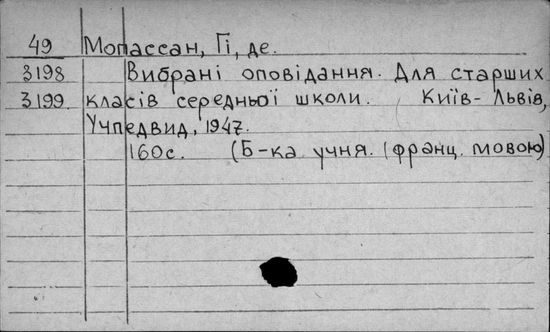 49 Мопассан, Гі, де.
3198 Вибрані оповідання. Для старших
3199. класів середньої школи. Київ-Львів,
Учпедвид, 1947.
160с. (Б-ка учня. (франц. мовою)